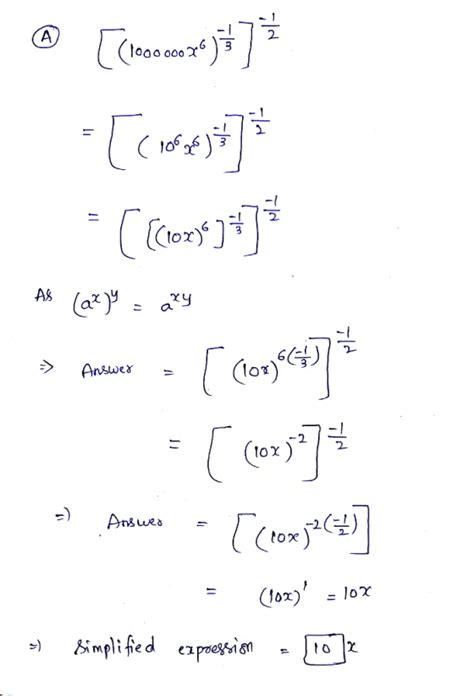 (A) [(1000000x⁶)^(-1/3)]^(-1/2)
= [(10⁶x⁶)^(-1/3)]^(-1/2)
= [[(10x)⁶]^(-1/3)]^(-1/2)
As (a^x)^y = a^xy
⇒ Answer = [(10x)^6(-1/3)]^(-1/2)
= [(10x)^-2]^(-1/2)
⇒ Answer = [(10x)^-2(-1/2)]
= (10x)¹ = 10x
⇒ Simplified expression = [10]x